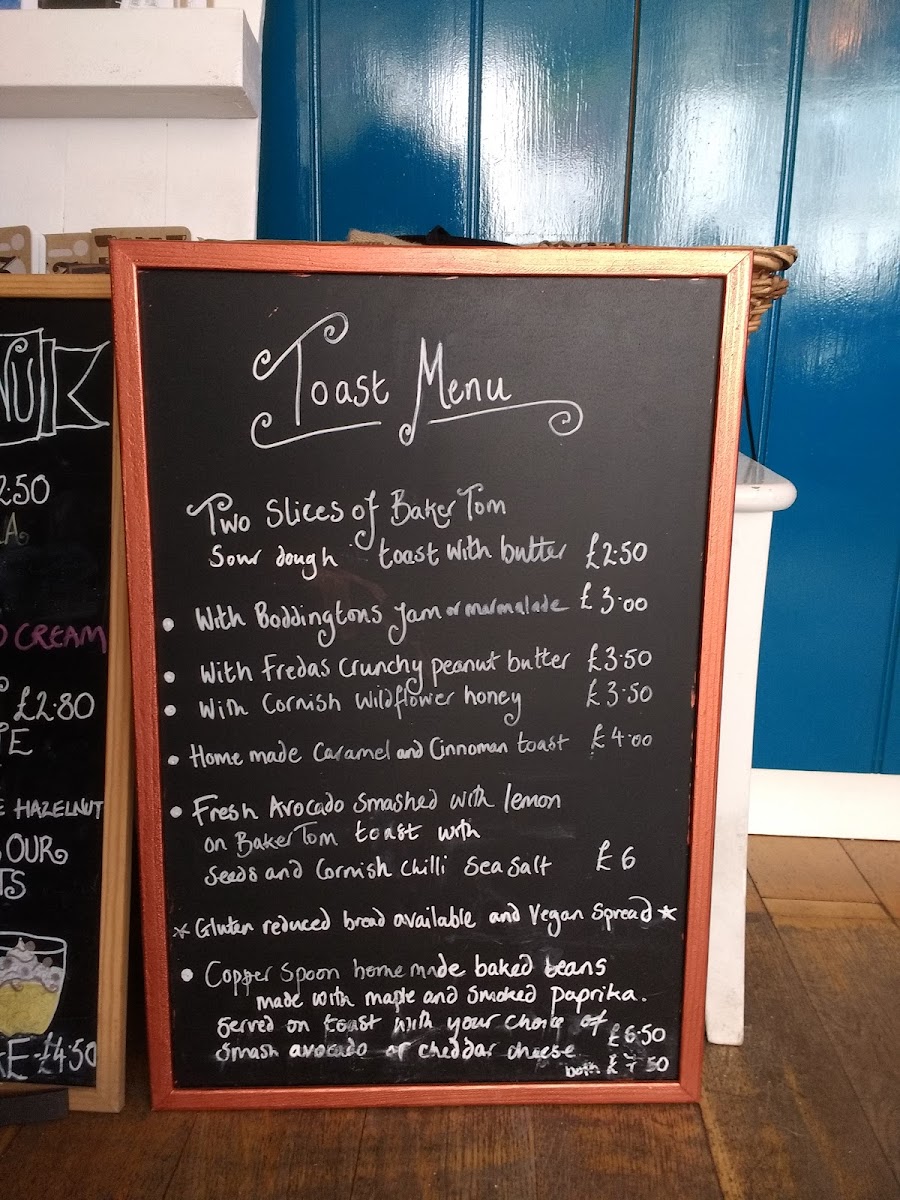 Toast Menu
Two Slices of Baker Tom
Sour dough toast with butter £2.50
• With Boddingtons Jam or marmalade £3.00
• With Fredas Crunchy peanut butter £3.50
• With Cornish Wildflower honey £3.50
• Home made Caramel and Cinnoman toast £4.00
• Fresh Avocado Smashed with lemon
on Baker Tom toast with
Seeds and Cornish Chilli Sea Salt £6
* Gluten reduced bread available and Vegan Spread *
• Copper Spoon home made baked beans
made with maple and smoked paprika.
Served on toast with your choice of
Smash avocado or cheddar cheese £6.50
both £7.50
2.50
D CREAM
£2.80
HAZELNUT
OUR
£4.50